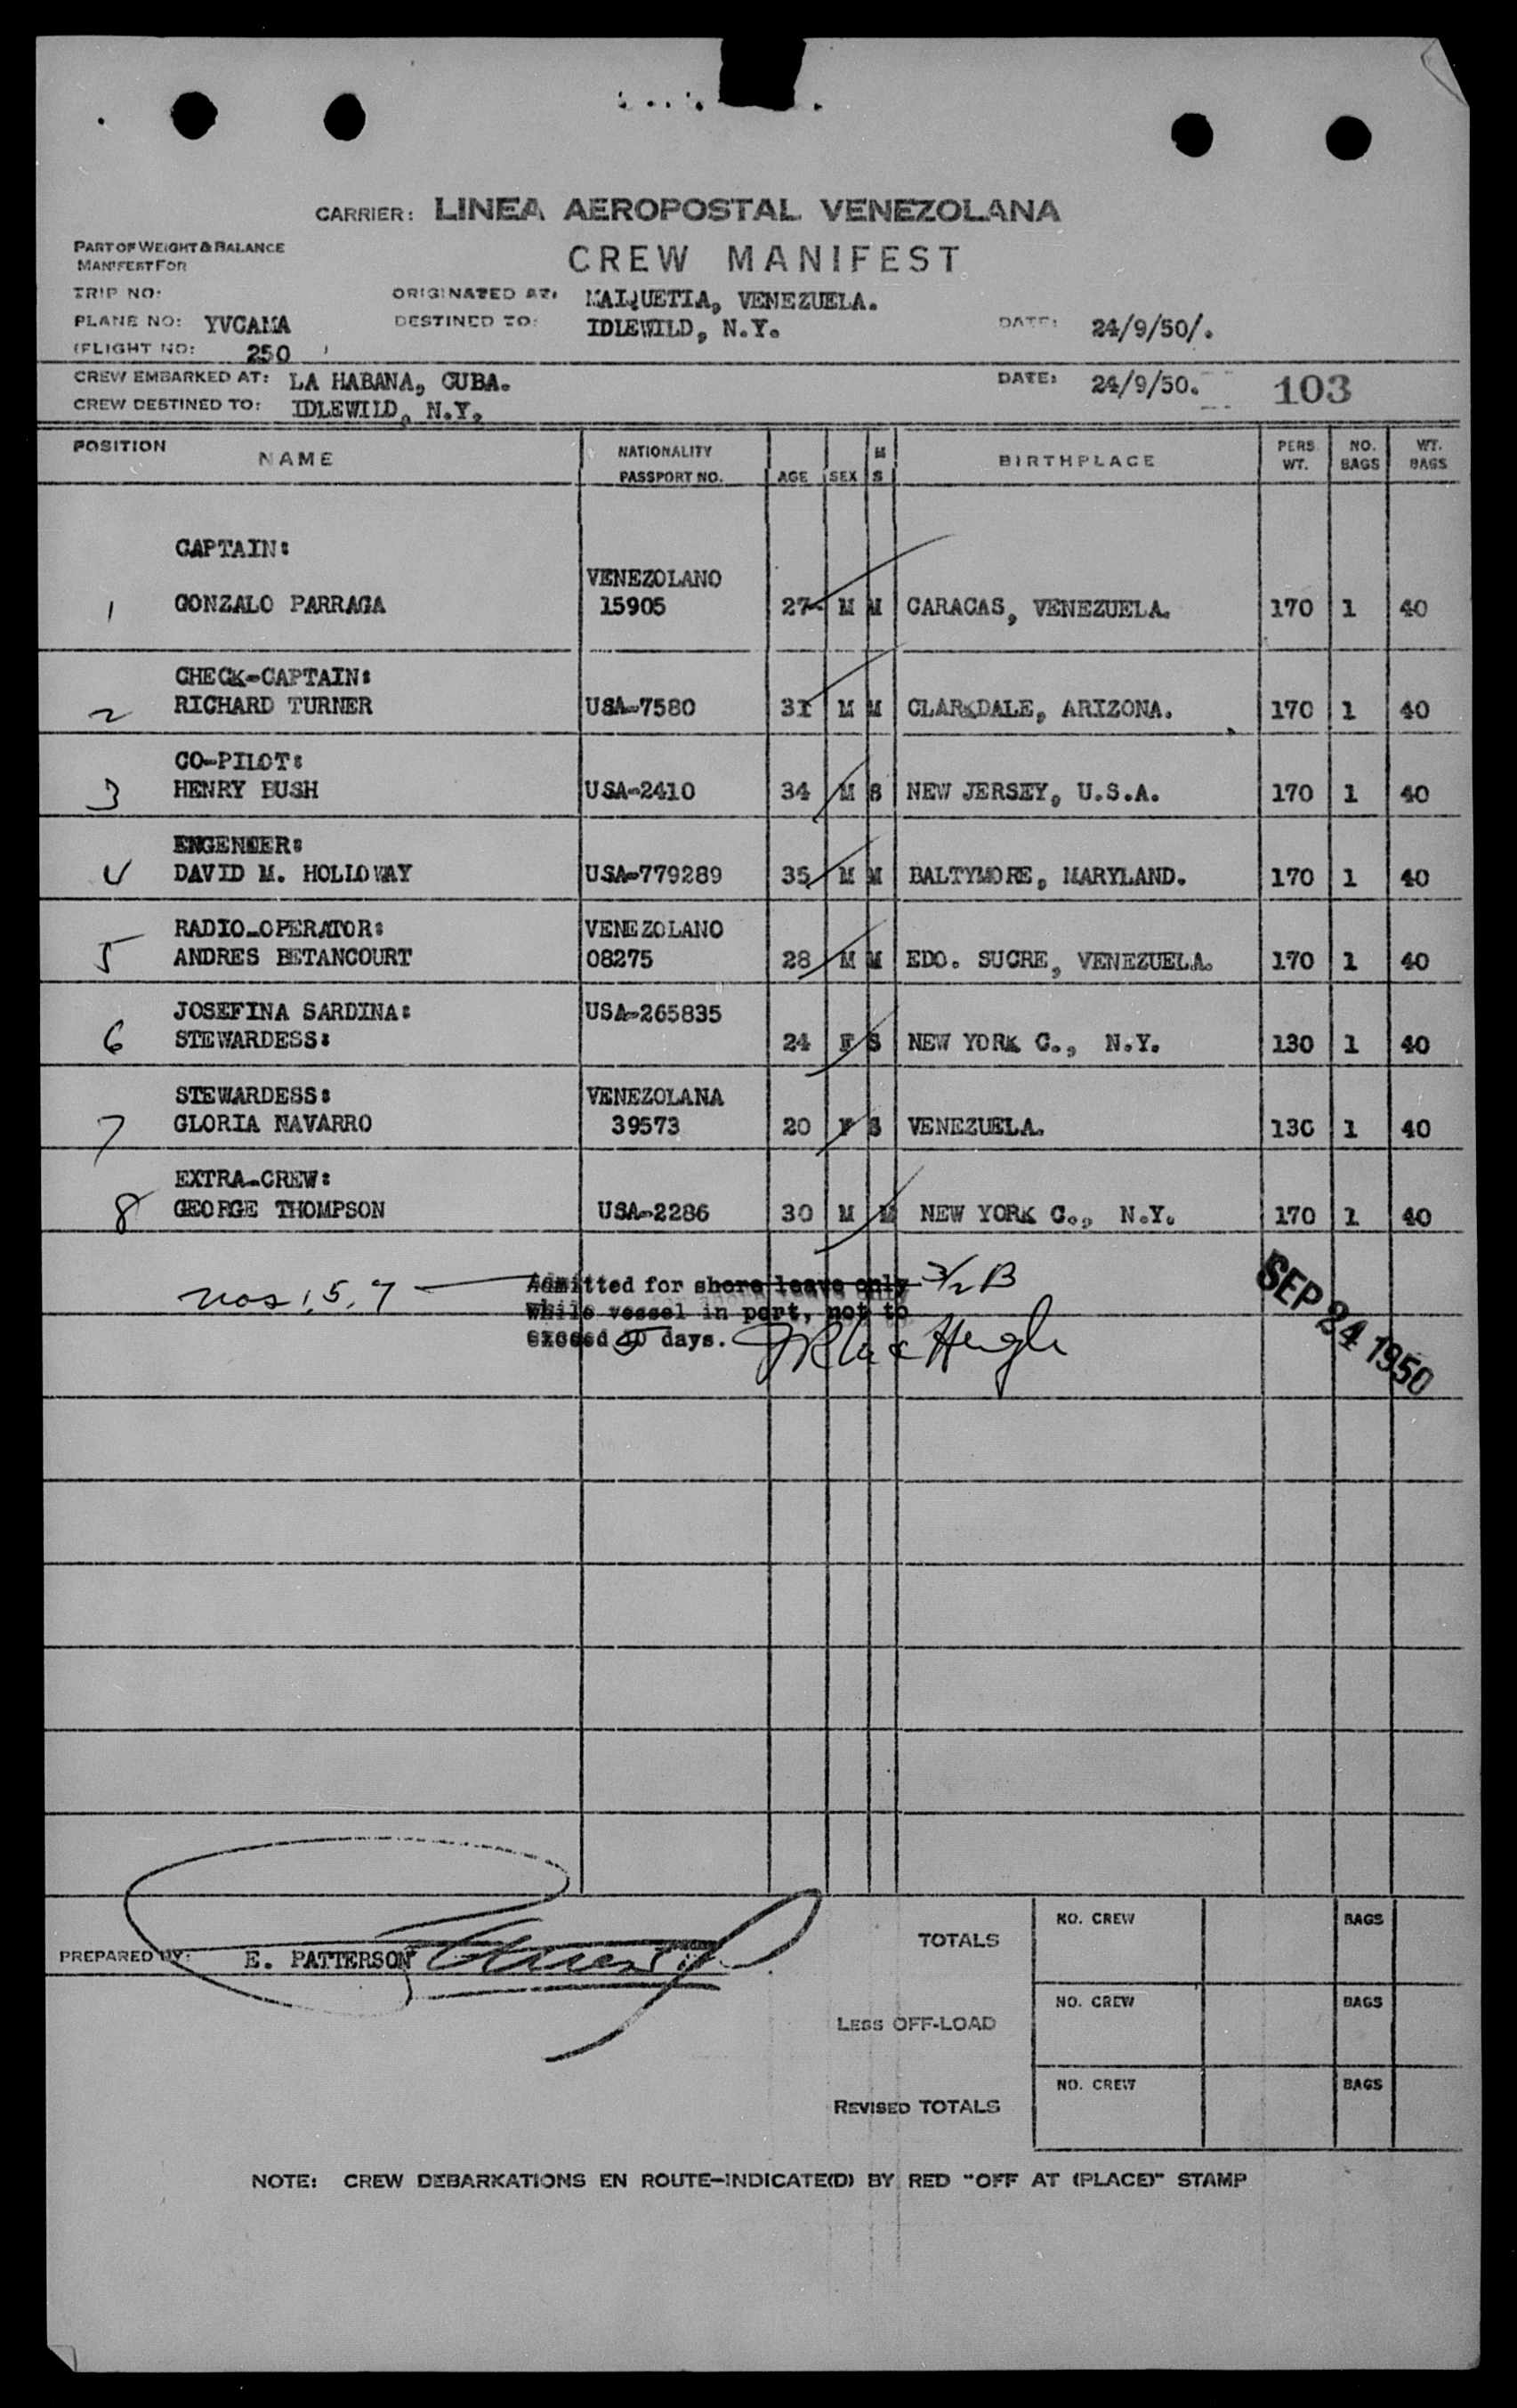 CARRIER: LINEA AEROPOSTAL VENEZOLANA
PART OF WEIGHT & BALANCE
MANIFEST FOR
CREW MANIFEST
TRIP NO:
ORIGINATED AT: MAIQUETIA, VENEZUELA.
PLANE NO: YVCAMA
DESTINED TO: IDLEWILD, N.Y.
DATE: 24/9/50/.
(FLIGHT NO: 250 )
CREW EMBARKED AT: LA HABANA, CUBA.
DATE: 24/9/50. 103
CREW DESTINED TO: IDLEWILD, N.Y.
POSITION NAME NATIONALITY PASSPORT NO. AGE SEX M S BIRTHPLACE PERS. WT. NO. BAGS WT. BAGS
CAPTAIN:
VENEZOLANO
1 GONZALO PARRAGA 15905 27 M M CARACAS, VENEZUELA. 170 1 40
CHECK-CAPTAIN:
2 RICHARD TURNER USA-7580 31 M M CLARKDALE, ARIZONA. 170 1 40
CO-PILOT:
3 HENRY BUSH USA-2410 34 M S NEW JERSEY, U.S.A. 170 1 40
ENGENEER:
4 DAVID M. HOLLOWAY USA-779289 35 M M BALTYMORE, MARYLAND. 170 1 40
RADIO-OPERATOR: VENEZOLANO
5 ANDRES BETANCOURT 08275 28 M M EDO. SUCRE, VENEZUELA. 170 1 40
JOSEFINA SARDINA: USA-265835
6 STEWARDESS: 24 F S NEW YORK C., N.Y. 130 1 40
STEWARDESS: VENEZOLANA
7 GLORIA NAVARRO 39573 20 F S VENEZUELA. 130 1 40
EXTRA-CREW:
8 GEORGE THOMPSON USA-2286 30 M M NEW YORK C., N.Y. 170 1 40
nos 1, 5, 7 Admitted for shore leave only 3/2 B
While vessel in port, not to
exceed days.
SEP 24 1950
PREPARED BY: E. PATTERSON
TOTALS NO. CREW BAGS
LESS OFF-LOAD NO. CREW BAGS
REVISED TOTALS NO. CREW BAGS
NOTE: CREW DEBARKATIONS EN ROUTE-INDICATE(D) BY RED "OFF AT (PLACE)" STAMP